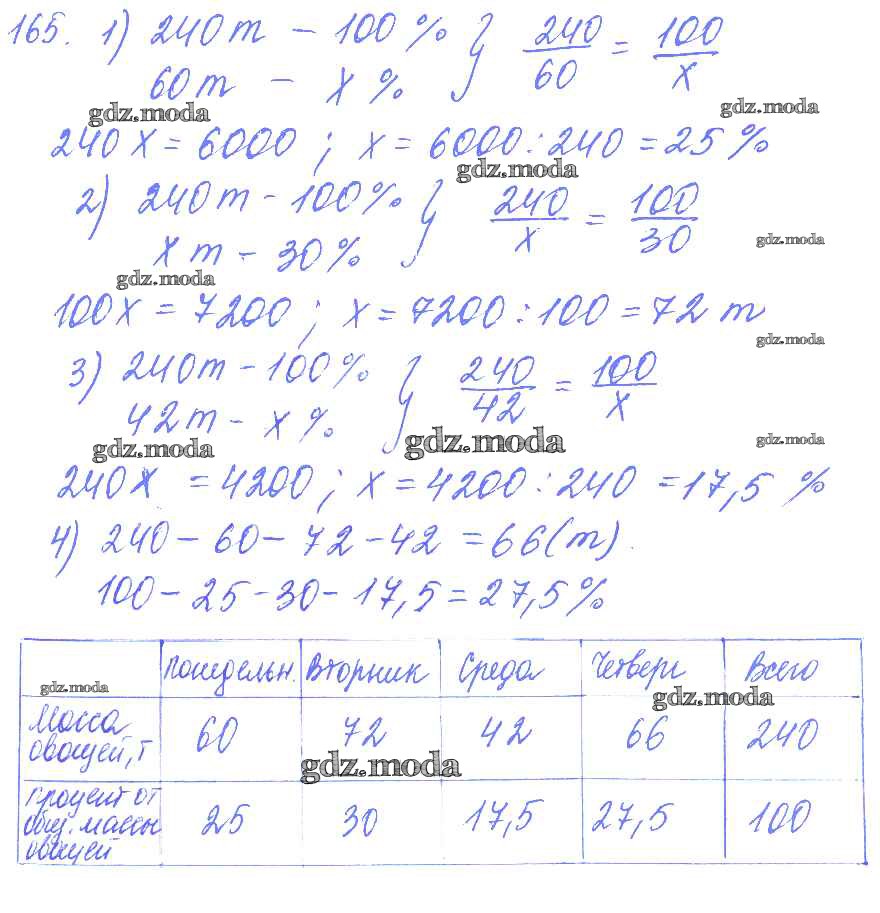 165. 1) 240 т – 100 % } 240/60 = 100/x
60 т – x %
gdz.moda gdz.moda
240 x = 6000 ; x = 6000 : 240 = 25 %
gdz.moda
2) 240 т – 100 % } 240/x = 100/30
x т – 30 %
gdz.moda
gdz.moda
100x = 7200 ; x = 7200 : 100 = 72 т
gdz.moda
3) 240 т – 100 % } 240/42 = 100/x
42 т – x %
gdz.moda gdz.moda gdz.moda
240x = 4200 ; x = 4200 : 240 = 17,5 %
4) 240 – 60 – 72 – 42 = 66 (т).
100 – 25 – 30 – 17,5 = 27,5 %
Понедельн. Вторник Среда Четверг Всего
gdz.moda gdz.moda
Масса овощей, т 60 72 42 66 240
gdz.moda
Процент от общ. массы овощей 25 30 17,5 27,5 100